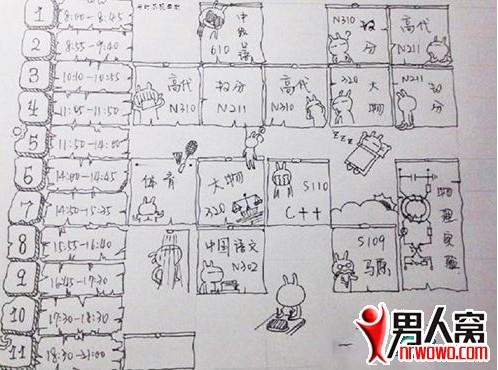 1 8:00-8:45
2 8:55-9:40
610
N310 数分
高代 N211
3 10:10-10:55
4 11:05-11:50
高代 N310
数分 N211
高代 N310
320 大物
N211 数分
5 11:50-14:00
zzz
6 14:00-14:45
7 14:50-15:35
体育
大物 320
S110 C++
物理实验
8 15:55-16:40
9 16:45-17:30
中国语文 N302
S109 马原
10 17:30-18:30
11 18:30-21:00
一
男人窝
nrwowo.com